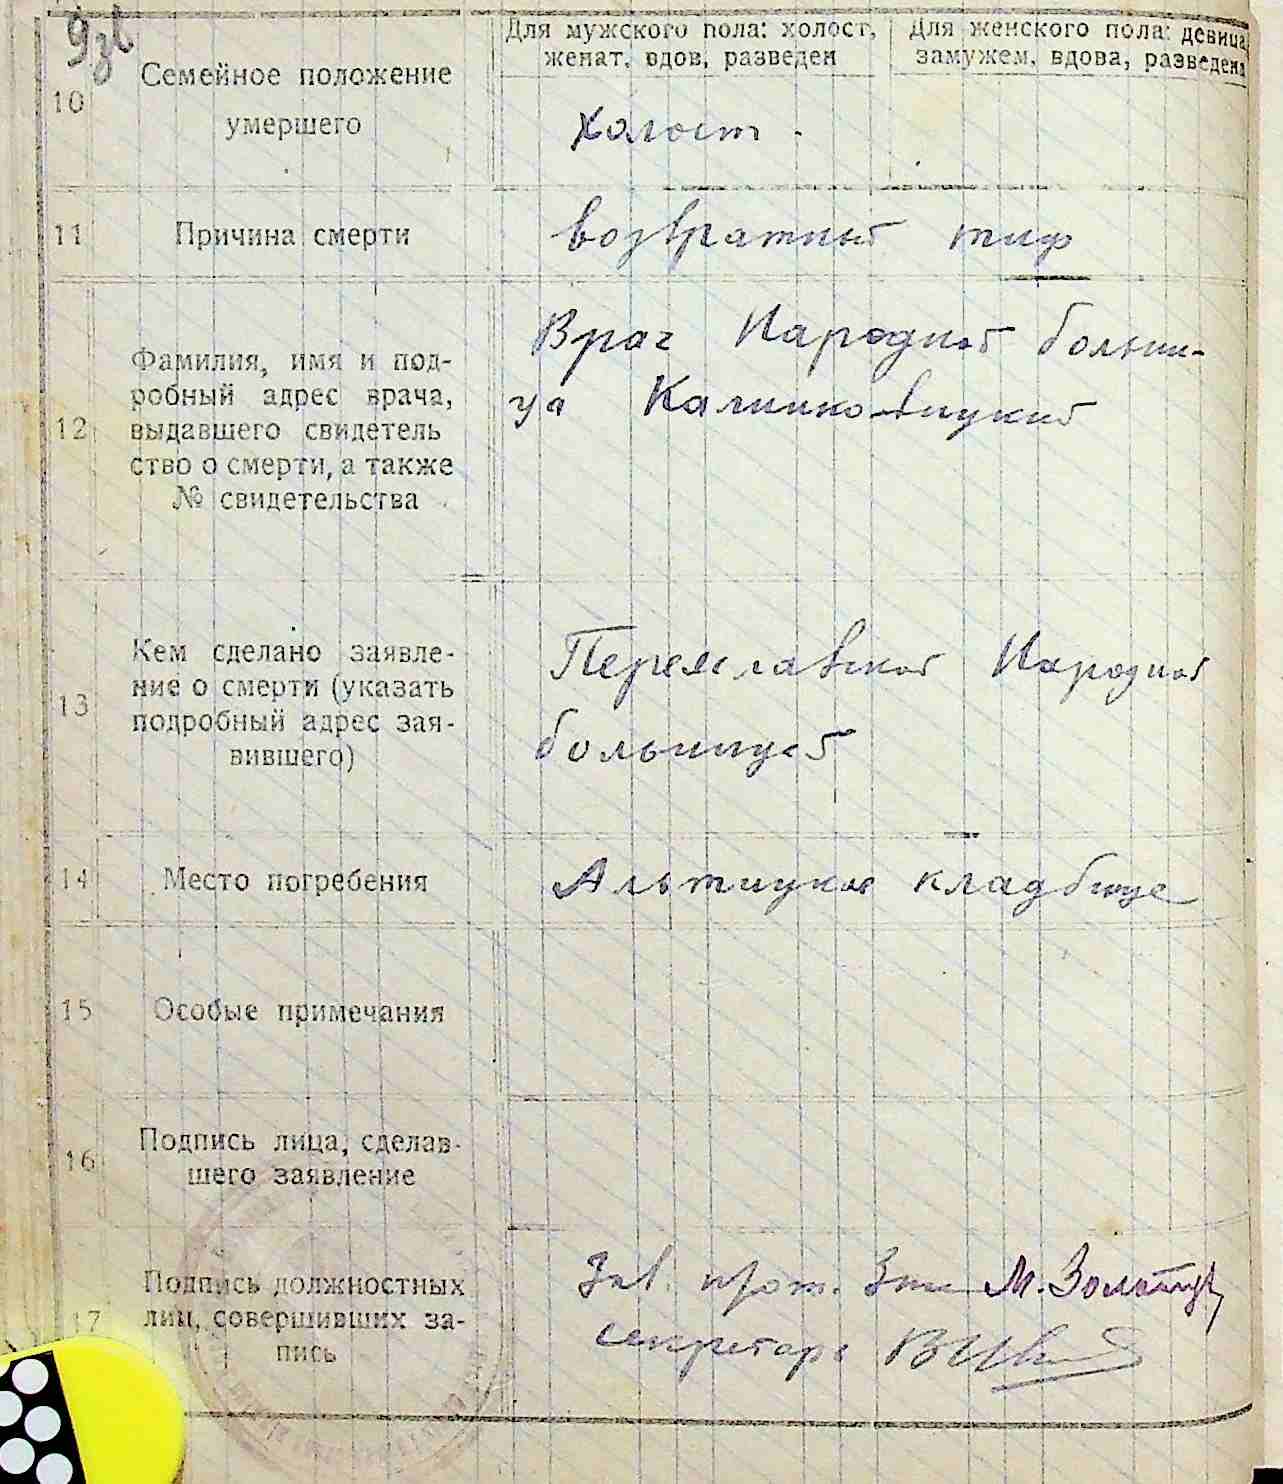 Для мужского пола: холост,
женат, вдов, разведен
Для женского пола: девица,
замужем, вдова, разведена
10
Семейное положение
умершего
холост.
11
Причина смерти
возвратный тиф
12
Фамилия, имя и под-
робный адрес врача,
выдавшего свидетель
ство о смерти, а также
№ свидетельства
Врач Народной больни-
ца
13
Кем сделано заявле-
ние о смерти (указать
подробный адрес зая-
вившего)
Народной
больницей
14
Место погребения
кладбище
15
Особые примечания
16
Подпись лица, сделав-
шего заявление
17
Подпись должностных
лиц, совершивших за-
пись
Зав.
М.
секретарь